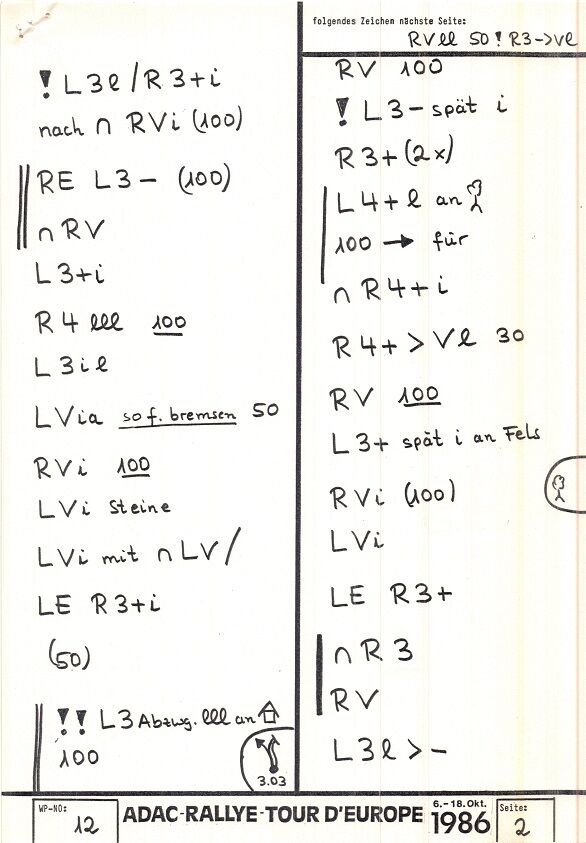 folgendes Zeichen nächste Seite:
RVll 50 ! R3->Vl
! L3l/R3+i
nach ∩ RVi (100)
RE L3- (100)
∩ RV
L3+i
R4 lll 100
L3il
LVia sof. bremsen 50
RVi 100
LVi Steine
LVi mit ∩ LV/
LE R3+i
(50)
!! L3 Abzwg. lll an
100
3.03
RV 100
! L3- spät i
R3+(2x)
L4+l an
100 → für
∩ R4+i
R4+ > Vl 30
RV 100
L3+ spät i an Fels
RVi (100)
LVi
LE R3+
∩ R3
RV
L3l > -
WP-NO:
12
ADAC-RALLYE-TOUR D'EUROPE
6.-18.Okt.
1986
Seite:
2